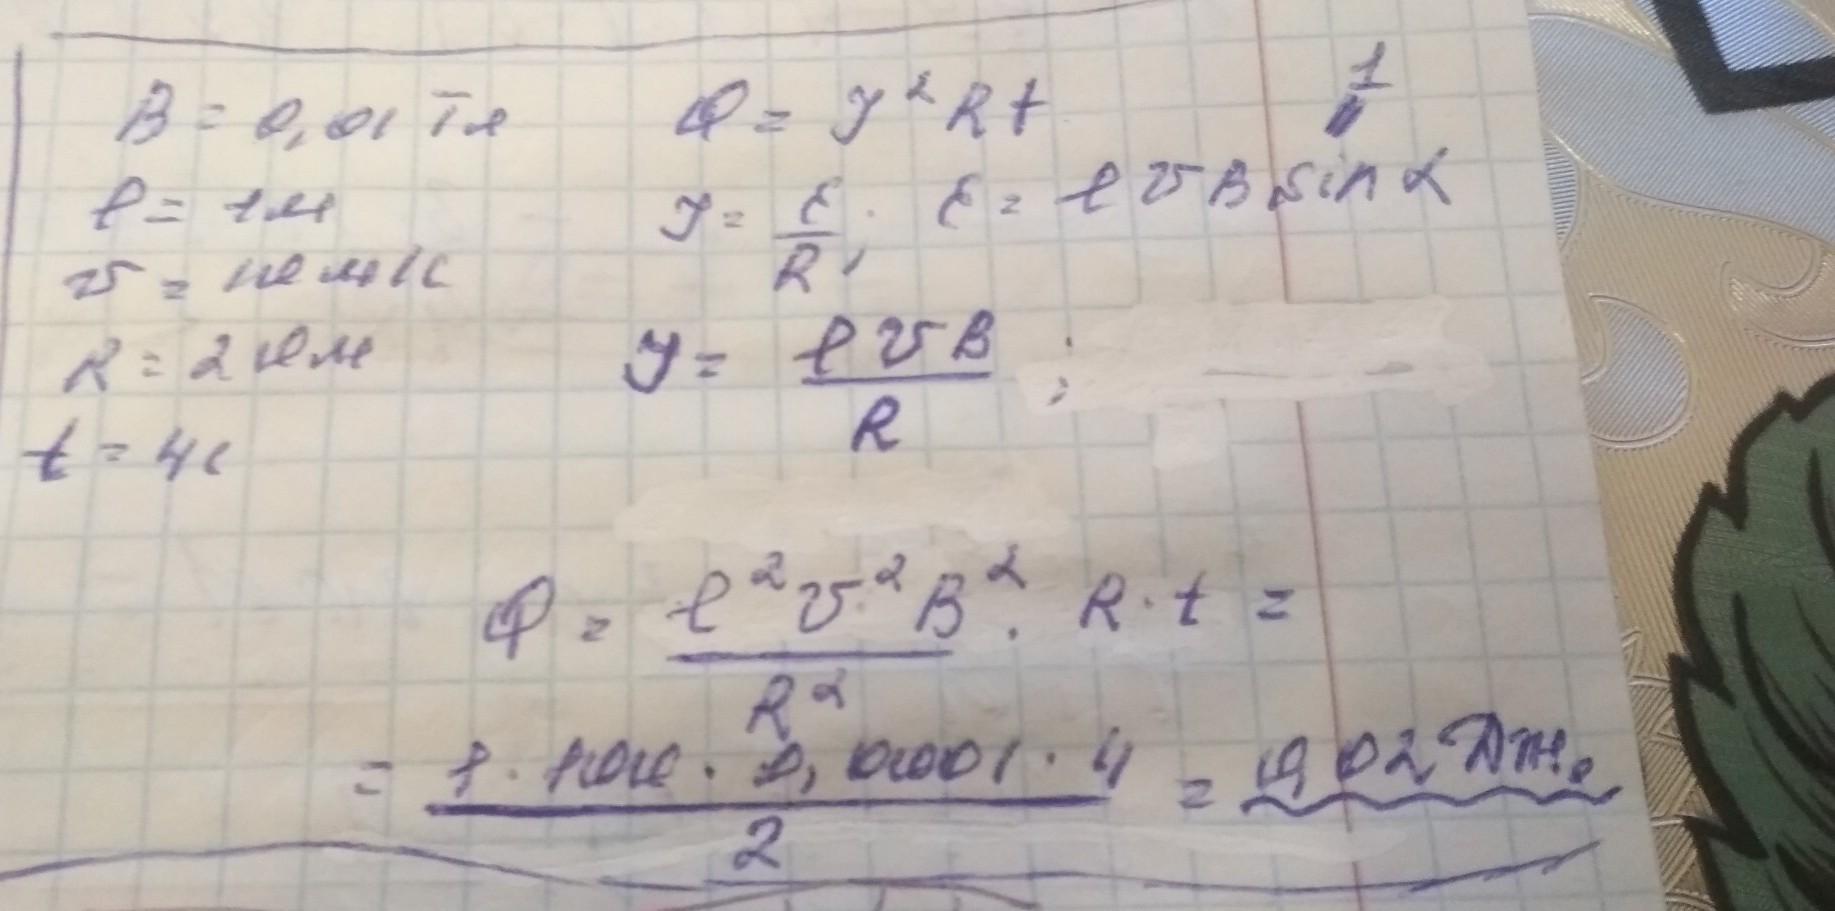 B = 0,01 Тл
l = 1м
v = 10 м/с
R = 2 Ом
t = 4с
Q = I² R t
I = ε/R, ε = l v B sin α
1
I = l v B / R ;
Q = l² v² B² / R² · R · t =
= 1 · 100 · 0,0001 · 4 / 2 = 0,02 Дж.